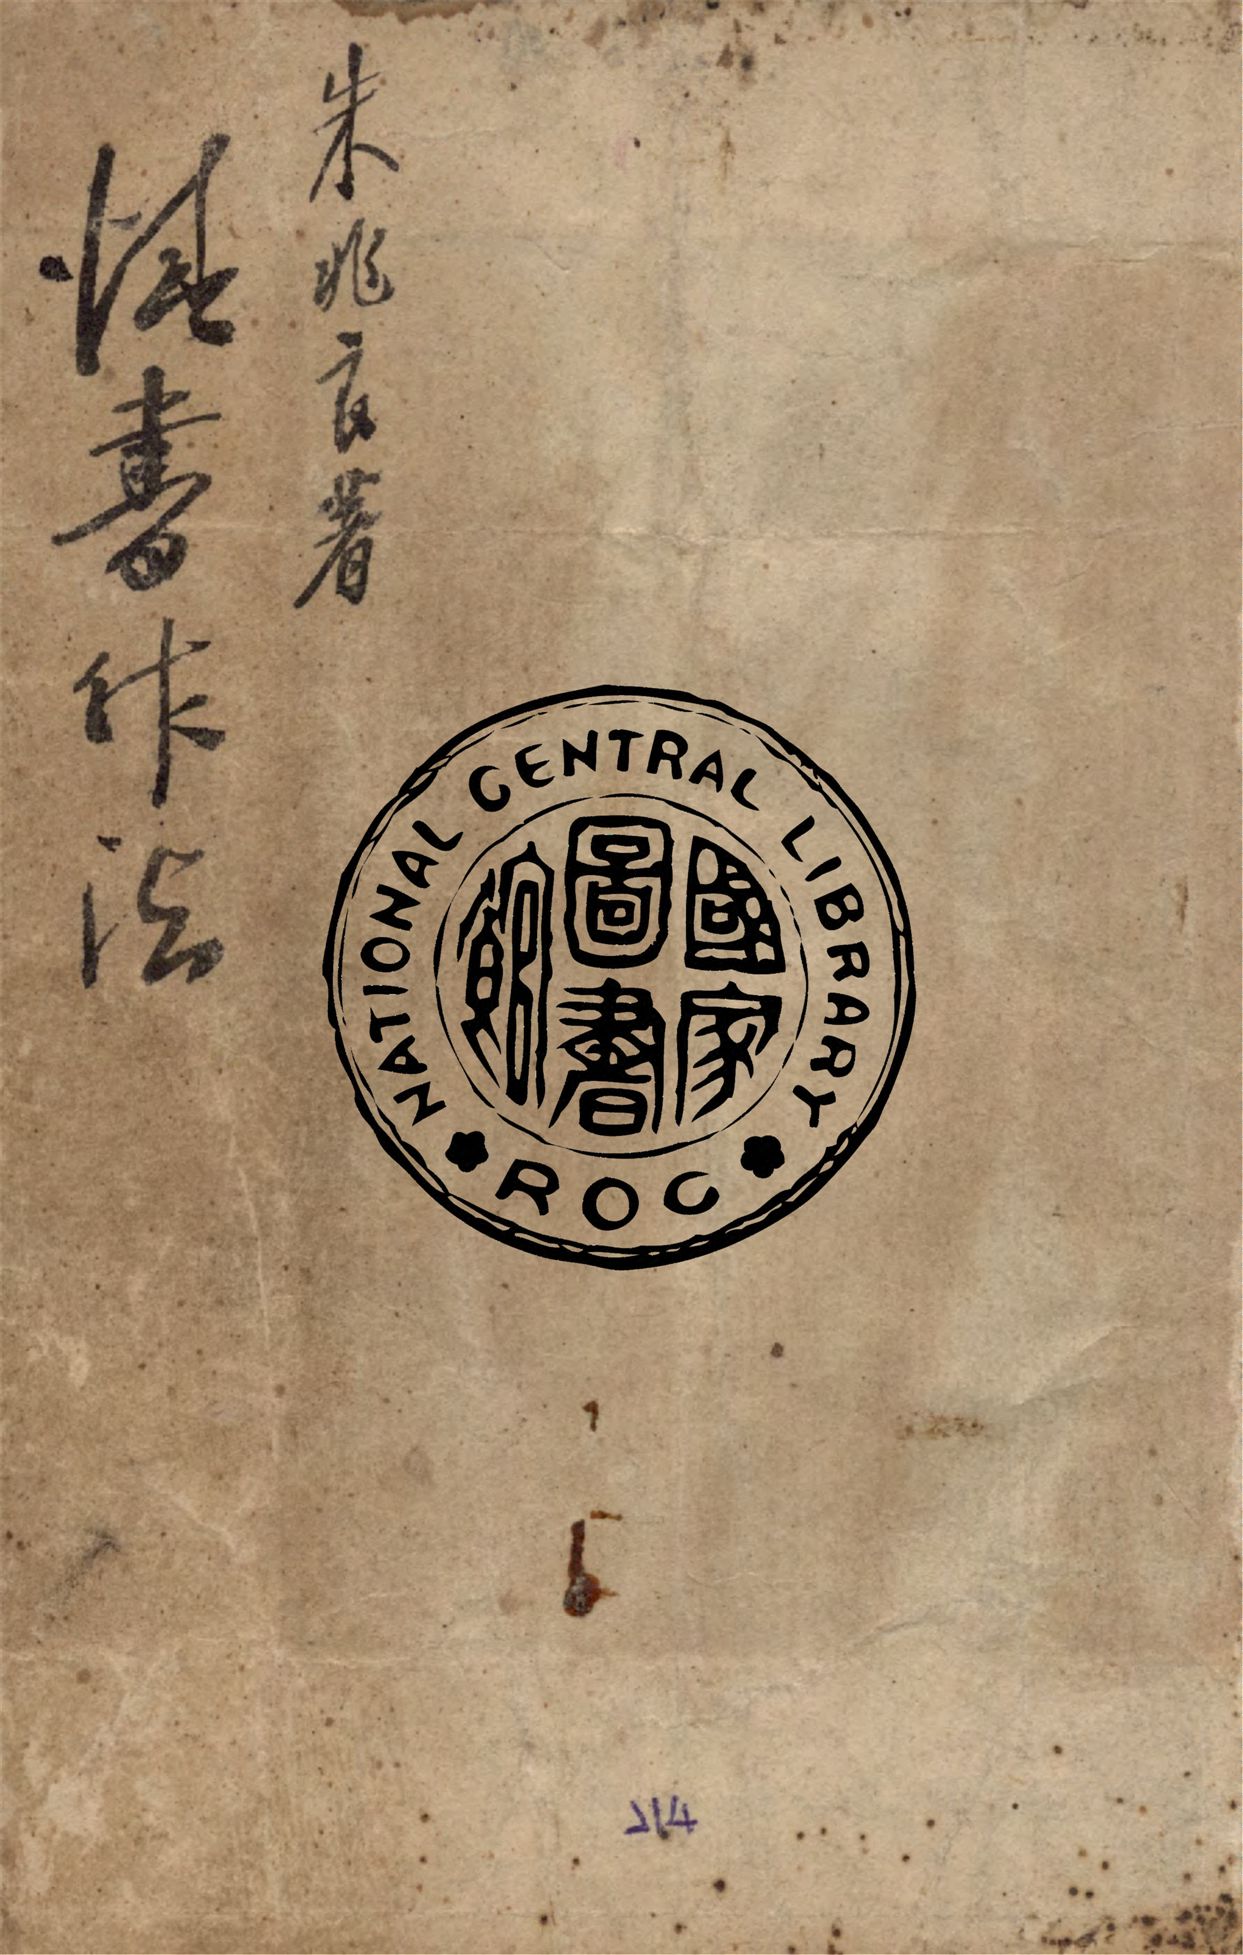 朱兆良著
情書作法
NATIONAL CENTRAL LIBRARY
國家
圖書
館
ROC
214